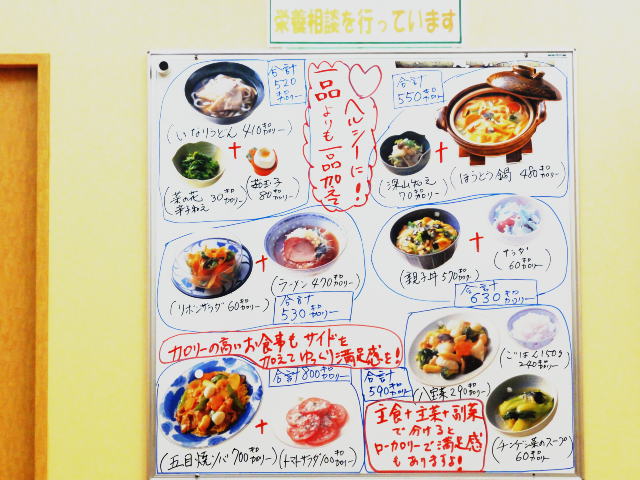 栄養相談を行っています
合計
520
キロカロリー
いなりうどん 410キロカロリー
菜の花
辛子和え
30キロカロリー
茹玉子
80キロカロリー
ヘルシーに!!
一品よりも一品加えて
合計
550キロカロリー
深山和え
70キロカロリー
ほうとう鍋 480キロカロリー
リボンサラダ 60キロカロリー
ラーメン 470キロカロリー
合計
530キロカロリー
親子丼 570キロカロリー
サラダ
60キロカロリー
合計
630キロカロリー
カロリーの高いお食事も サイドを
加えてゆっくり満足感を!
合計 800キロカロリー
五目焼ソバ 700キロカロリー
トマトサラダ 100キロカロリー
合計
590キロカロリー
八宝菜 290キロカロリー
ごはん 150g
240キロカロリー
チンゲン菜のスープ
60キロカロリー
主食+主菜+副菜
で分けると
ローカロリーで満足感
もありますよ!